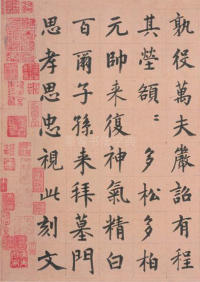 孰役萬夫嚴詔有程
其塋額〻多松多柏
元帥来復神氣精白
百爾子孫来拜墓門
思孝思忠視此刻文